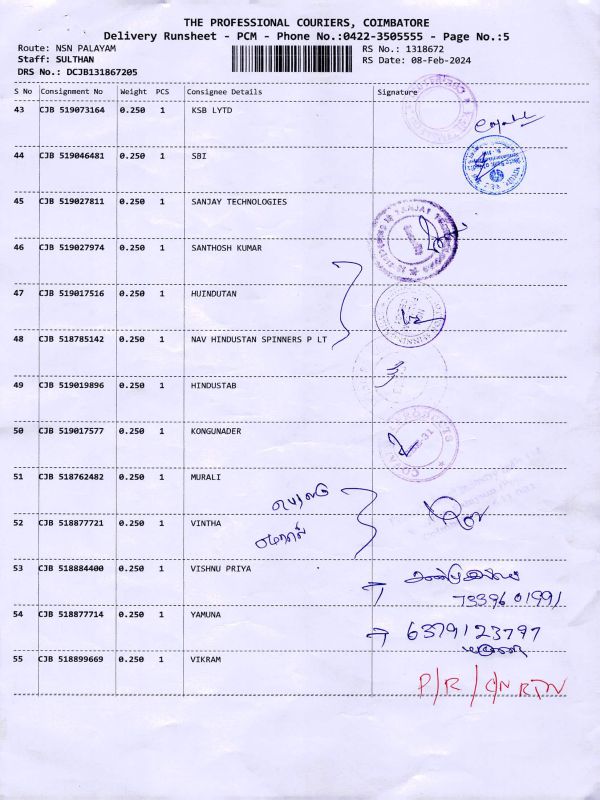 THE PROFESSIONAL COURIERS, COIMBATORE
Delivery Runsheet - PCM - Phone No.:0422-3505555 - Page No.:5
Route: NSN PALAYAM RS No.: 1318672
Staff: SULTHAN RS Date: 08-Feb-2024
DRS No.: DCJB131867205
S No Consignment No Weight PCS Consignee Details Signature
43 CJB 519073164 0.250 1 KSB LYTD
44 CJB 519046481 0.250 1 SBI
45 CJB 519027811 0.250 1 SANJAY TECHNOLOGIES
46 CJB 519027974 0.250 1 SANTHOSH KUMAR
47 CJB 519017516 0.250 1 HUINDUTAN
48 CJB 518785142 0.250 1 NAV HINDUSTAN SPINNERS P LT
49 CJB 519019896 0.250 1 HINDUSTAB
50 CJB 519017577 0.250 1 KONGUNADER
51 CJB 518762482 0.250 1 MURALI
52 CJB 518877721 0.250 1 VINTHA
53 CJB 518884400 0.250 1 VISHNU PRIYA
7339601991
54 CJB 518877714 0.250 1 YAMUNA 6379123797
55 CJB 518899669 0.250 1 VIKRAM P/R/CN RTN